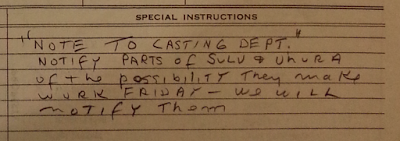 SPECIAL INSTRUCTIONS
"NOTE TO CASTING DEPT."
NOTIFY PARTS of SULU & UHURA
of the possibility They make
WURK FRIDAY - we will
notify Them